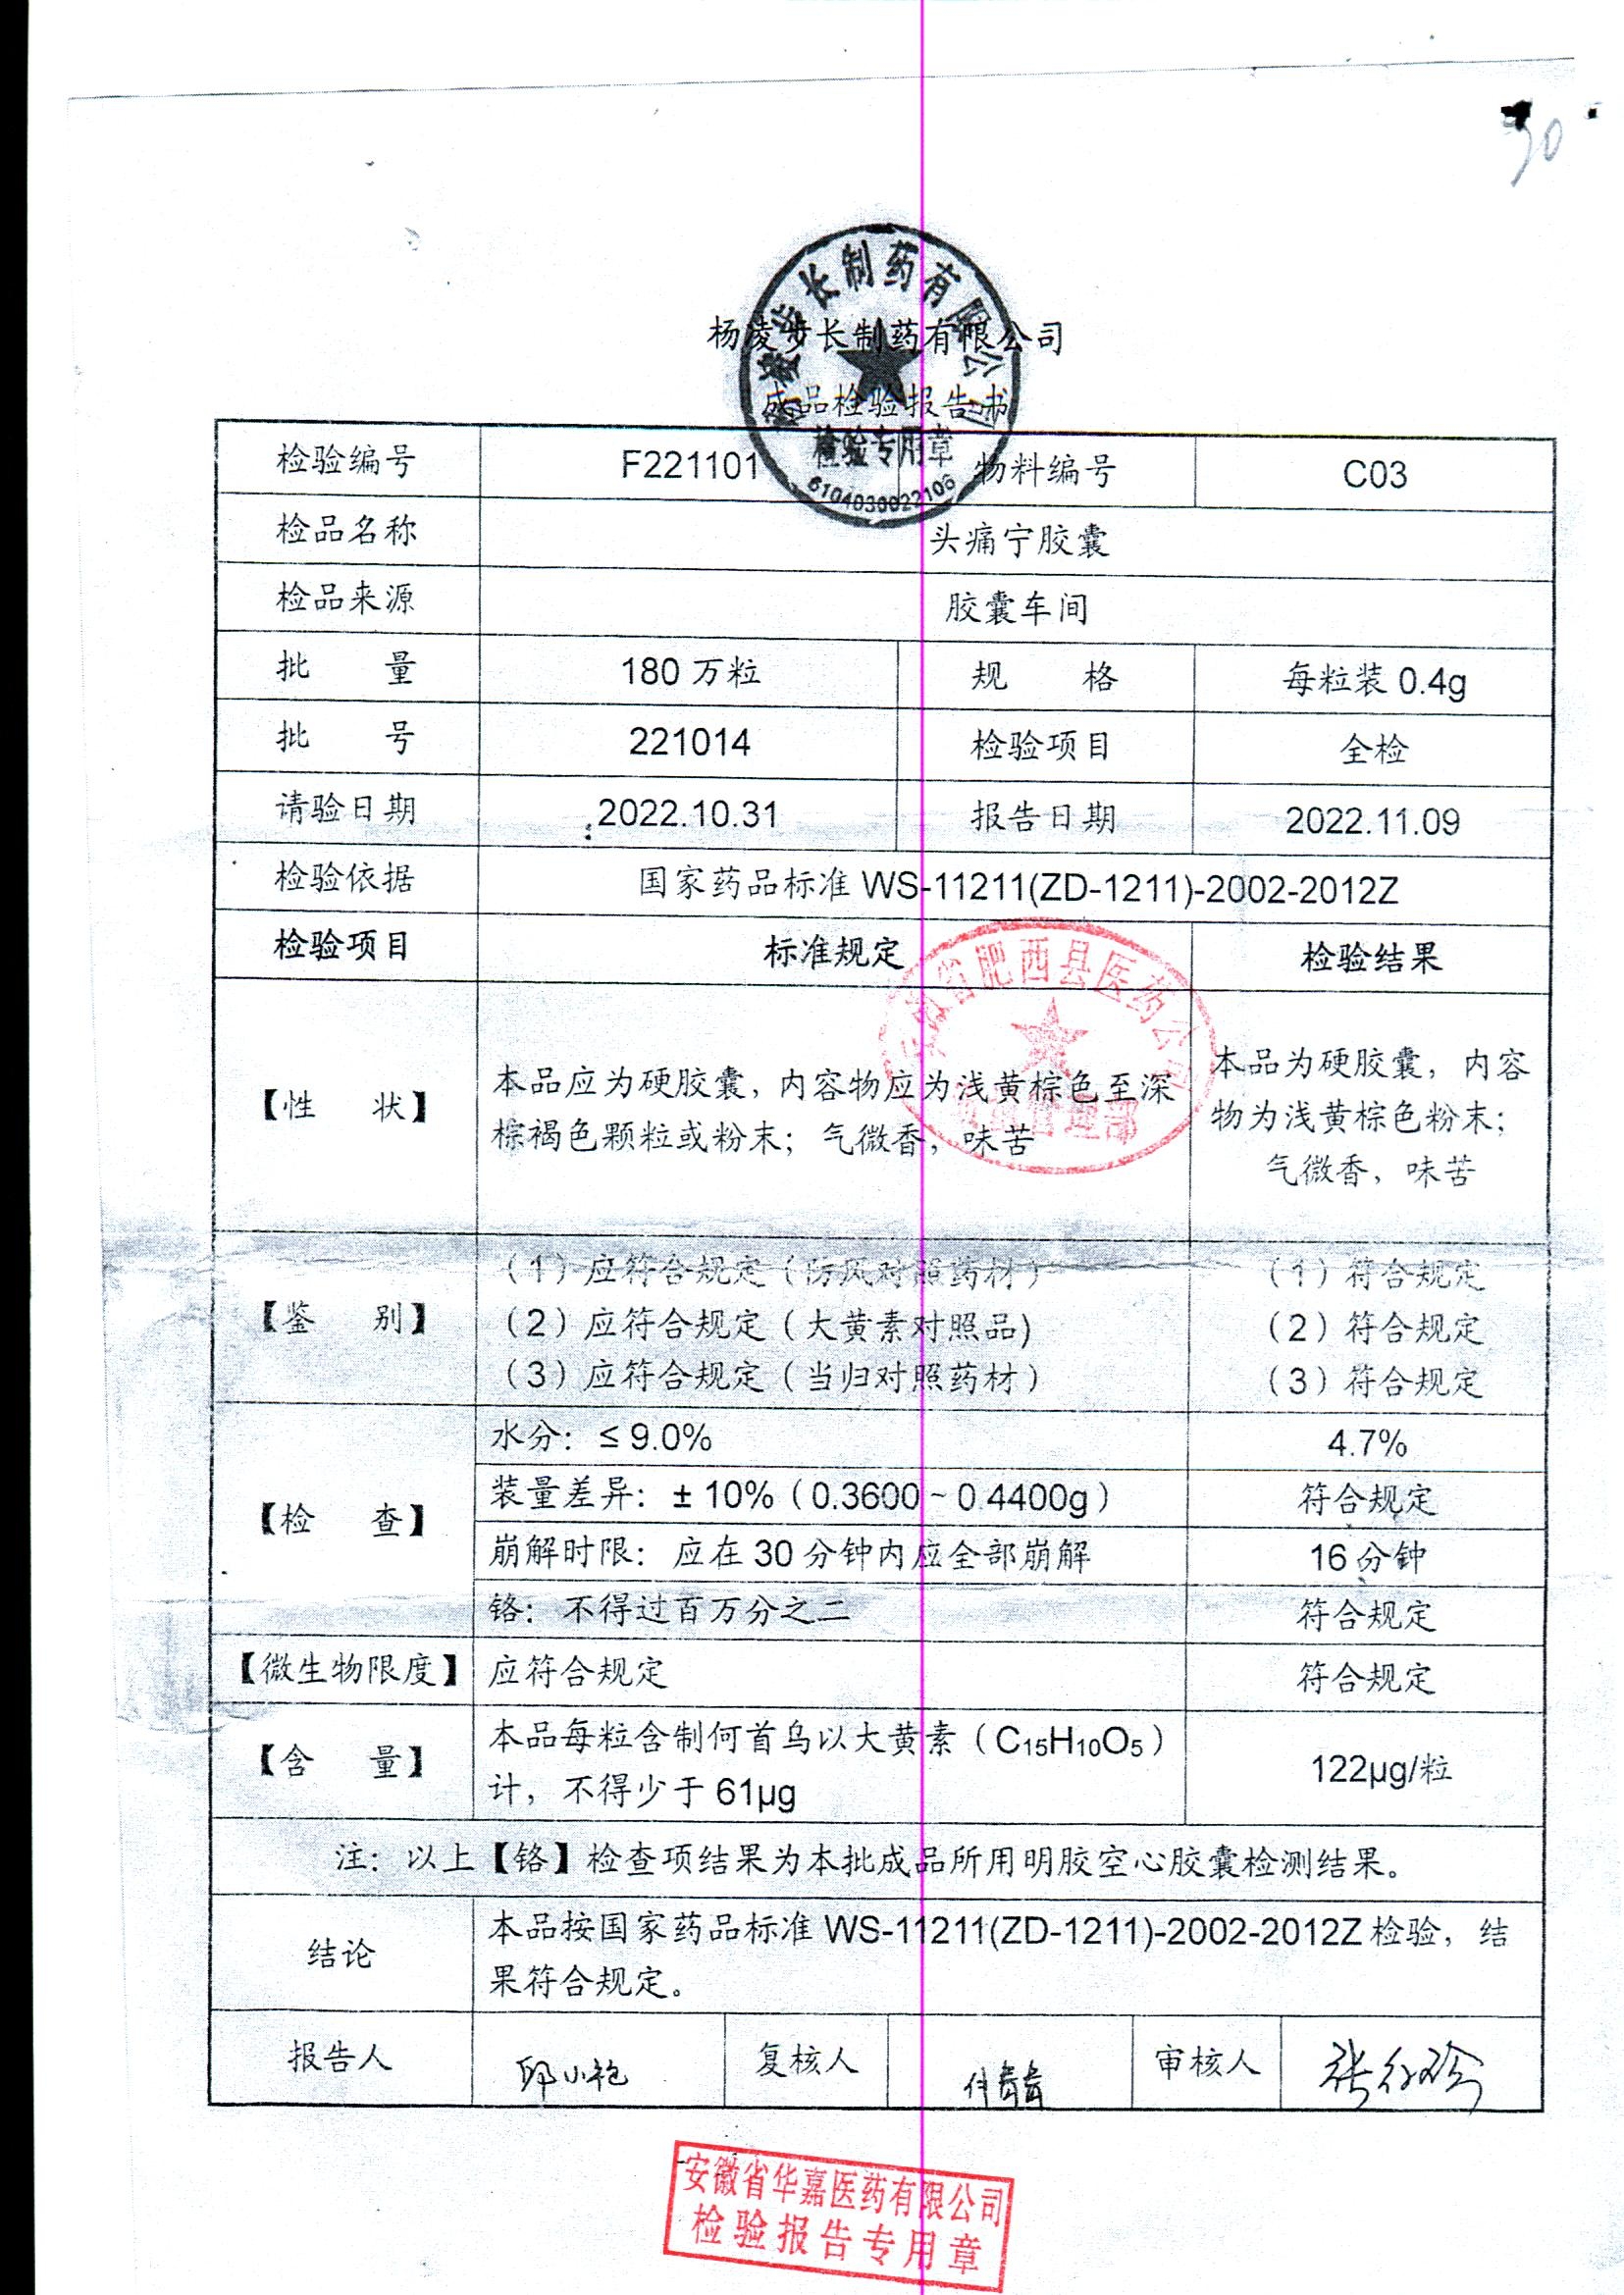 90
杨凌步长制药有限公司
杨凌步长制药有限公司
成品检验报告书
检验专用章
6104030022106
检验编号 F221101 物料编号 C03
检品名称 头痛宁胶囊
检品来源 胶囊车间
批 量 180万粒 规 格 每粒装 0.4g
批 号 221014 检验项目 全检
请验日期 2022.10.31 报告日期 2022.11.09
检验依据 国家药品标准 WS-11211(ZD-1211)-2002-2012Z
检验项目 标准规定 检验结果
安徽省肥西县医药公司
【性 状】 本品应为硬胶囊，内容物应为浅黄棕色至深 本品为硬胶囊，内容
棕褐色颗粒或粉末；气微香，味苦 物为浅黄棕色粉末；
气微香，味苦
（1）应符合规定（防风对照药材） （1）符合规定
【鉴 别】 （2）应符合规定（大黄素对照品) （2）符合规定
（3）应符合规定（当归对照药材） （3）符合规定
【检 查】 水分：≤9.0% 4.7%
装量差异：±10%（0.3600~0.4400g） 符合规定
崩解时限：应在30分钟内应全部崩解 16分钟
铬：不得过百万分之二 符合规定
【微生物限度】 应符合规定 符合规定
【含 量】 本品每粒含制何首乌以大黄素（C15H10O5）
计，不得少于61μg 122μg/粒
注：以上【铬】检查项结果为本批成品所用明胶空心胶囊检测结果。
结论 本品按国家药品标准 WS-11211(ZD-1211)-2002-2012Z 检验，结
果符合规定。
报告人 复核人 审核人
安徽省华嘉医药有限公司
检验报告专用章